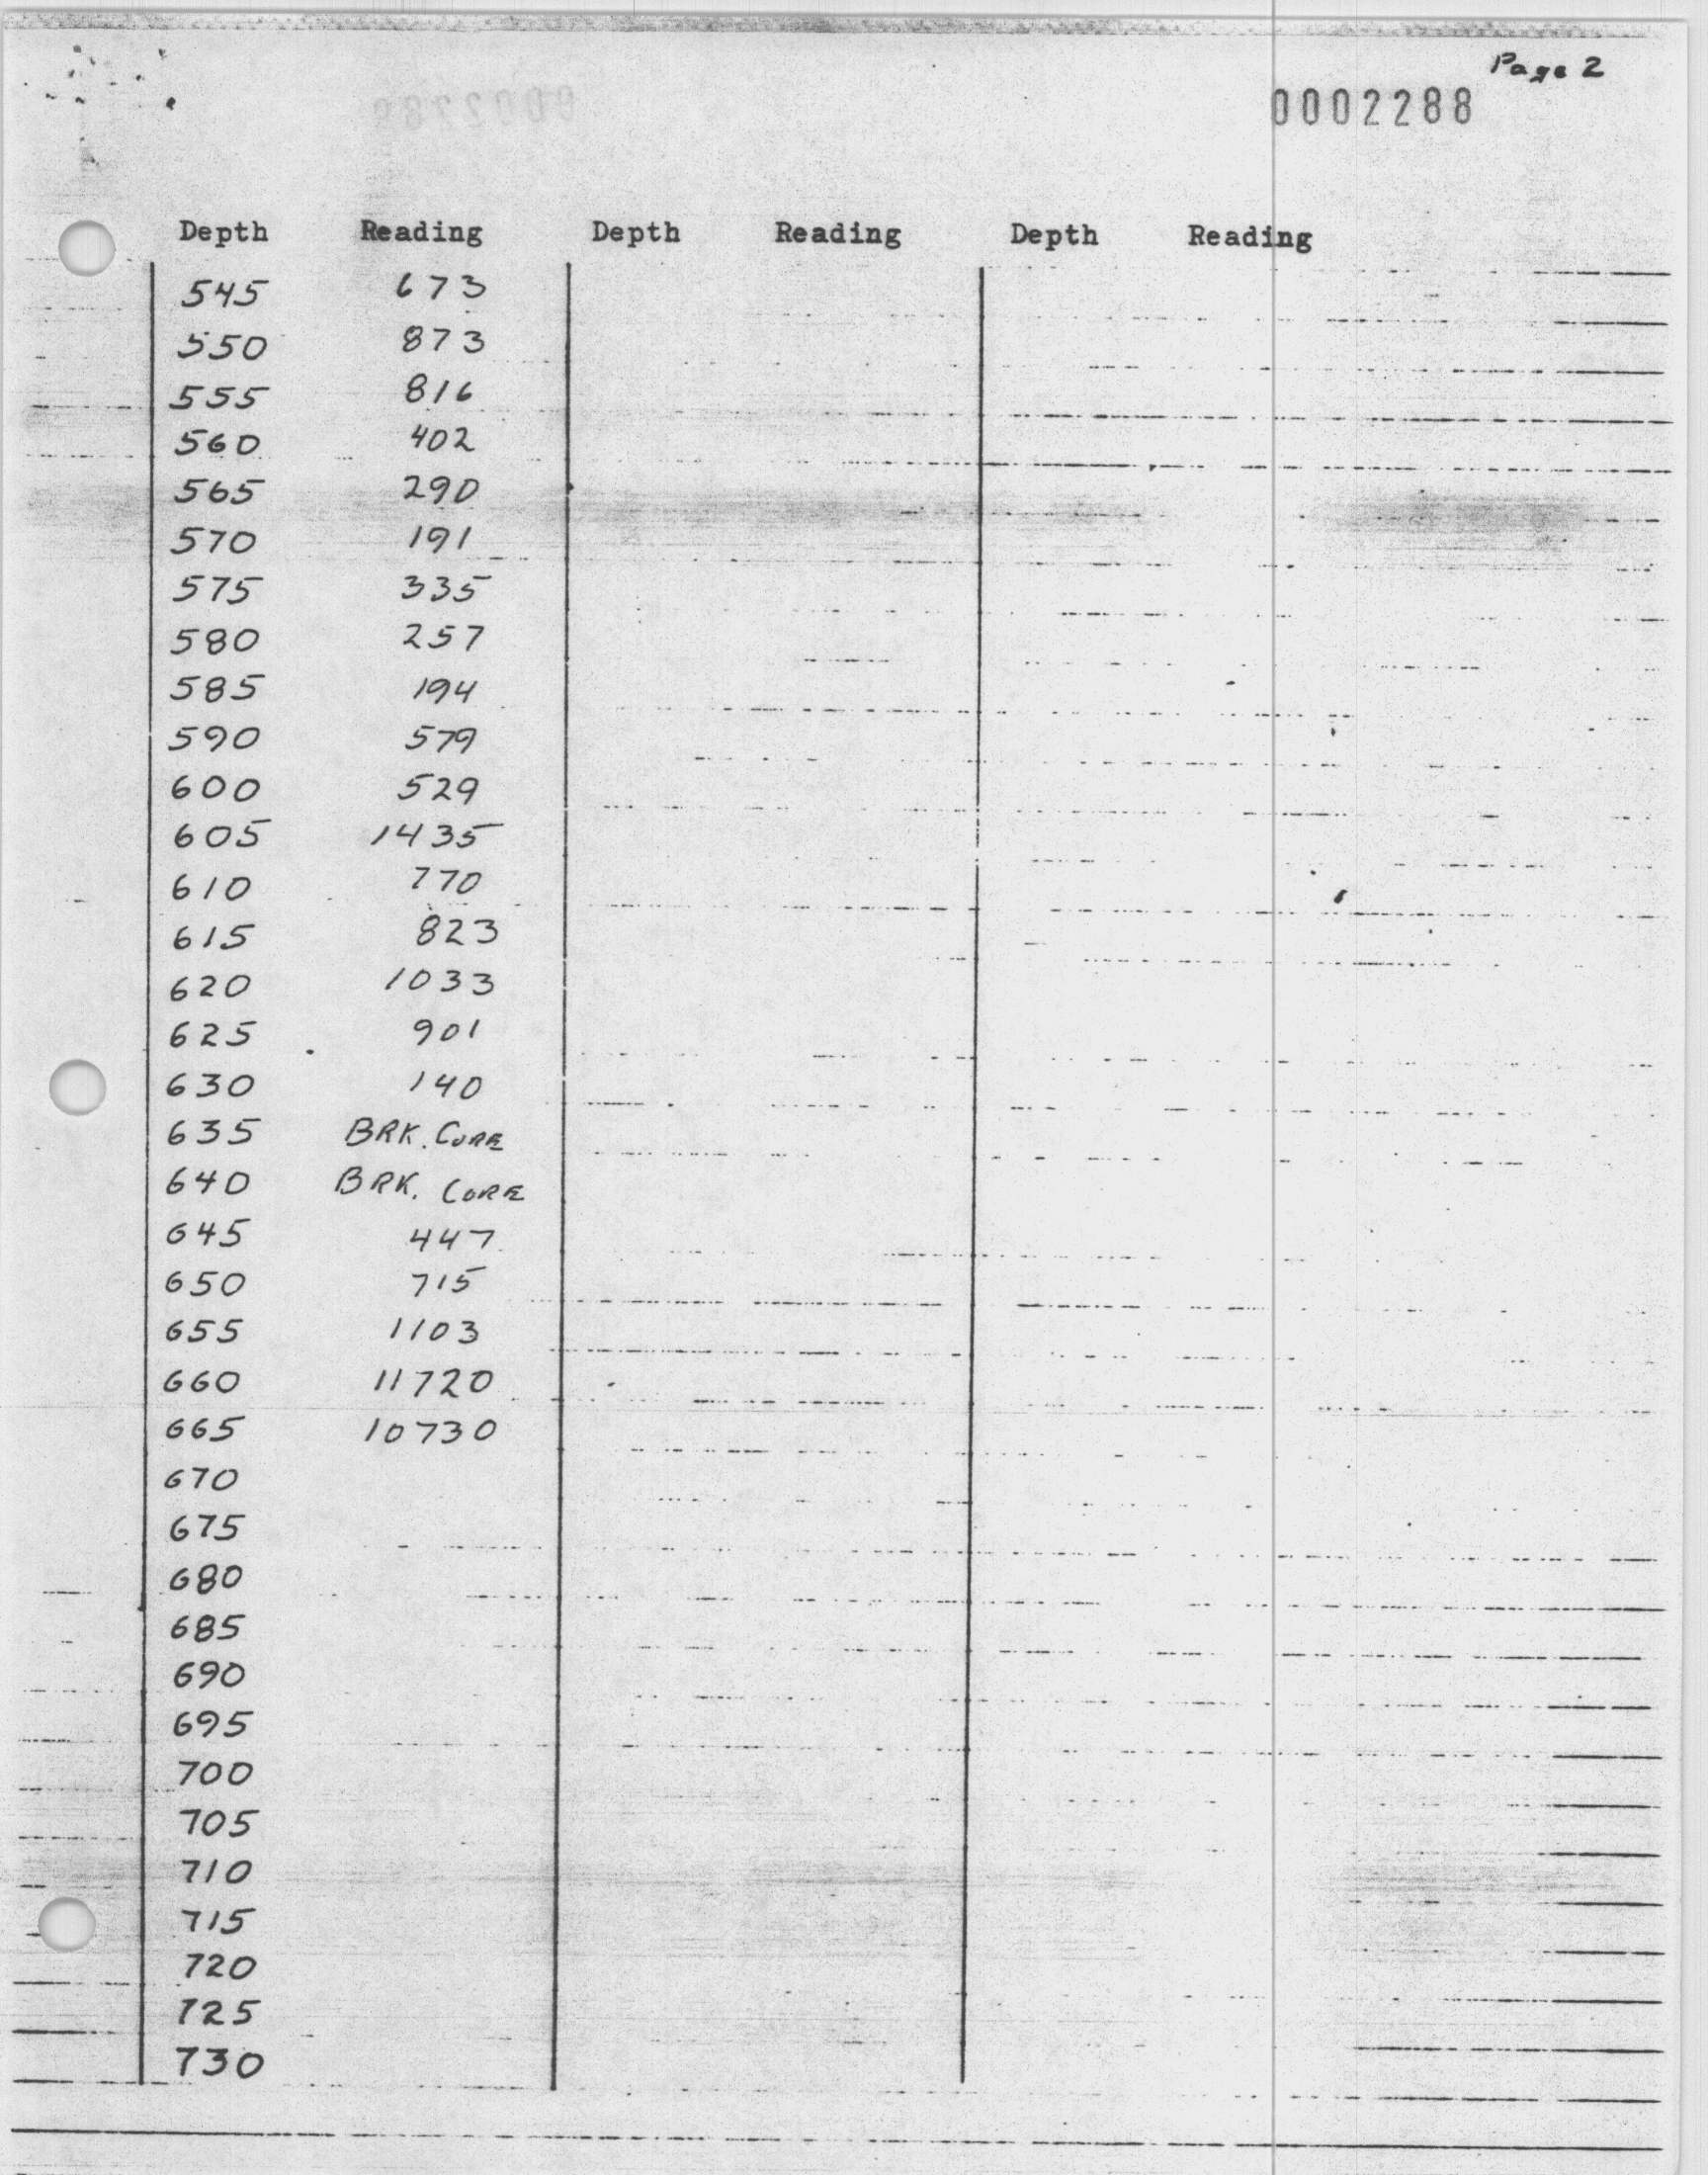 Page 2
0002288
Depth Reading Depth Reading Depth Reading
545 673
550 873
555 816
560 402
565 290
570 191
575 335
580 257
585 194
590 579
600 529
605 1435
610 770
615 823
620 1033
625 901
630 140
635 BRK. CORE
640 BRK. CORE
645 447
650 715
655 1103
660 11720
665 10730
670
675
680
685
690
695
700
705
710
715
720
725
730